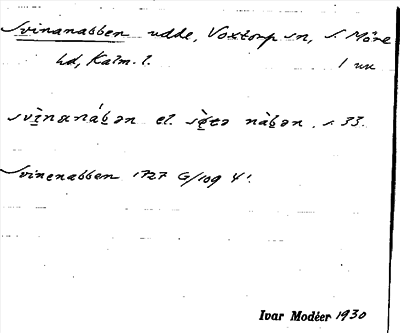 Svinanabben udde, Voxtorp sn, S. Möre
hd, Kalm. l. 1 uu
svìnanáb̀ən el. s. 33.
Svinenabben 1727 G/109 4¹.
Ivar Modéer 1930